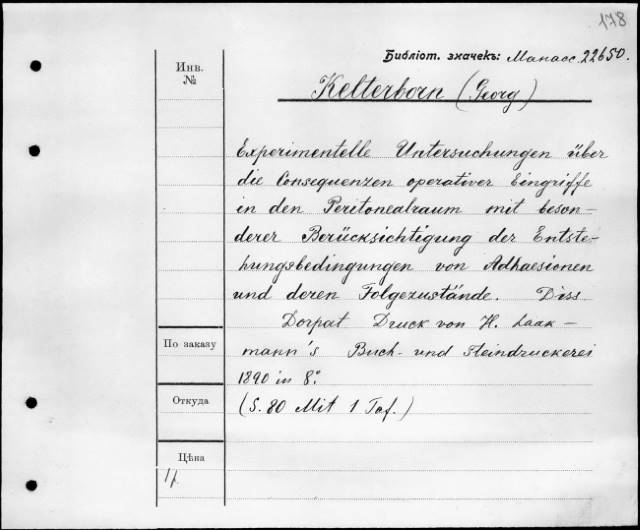 178
Библіот. значекъ: Манасс. 22650.
Инв.
№
Kelterborn (Georg)
Experimentelle Untersuchungen über
die Consequenzen operativer Eingriffe
in den Peritonealraum mit beson-
derer Berücksichtigung der Entste-
hungsbedingungen von Adhaesionen
und deren Folgezustände. Diss
Dorpat Druck von H. Laak-
mann's Buch- und Steindruckerei
1890 in 8°.
(S. 80 Mit 1 Taf.)
По заказу
Откуда
Цѣна